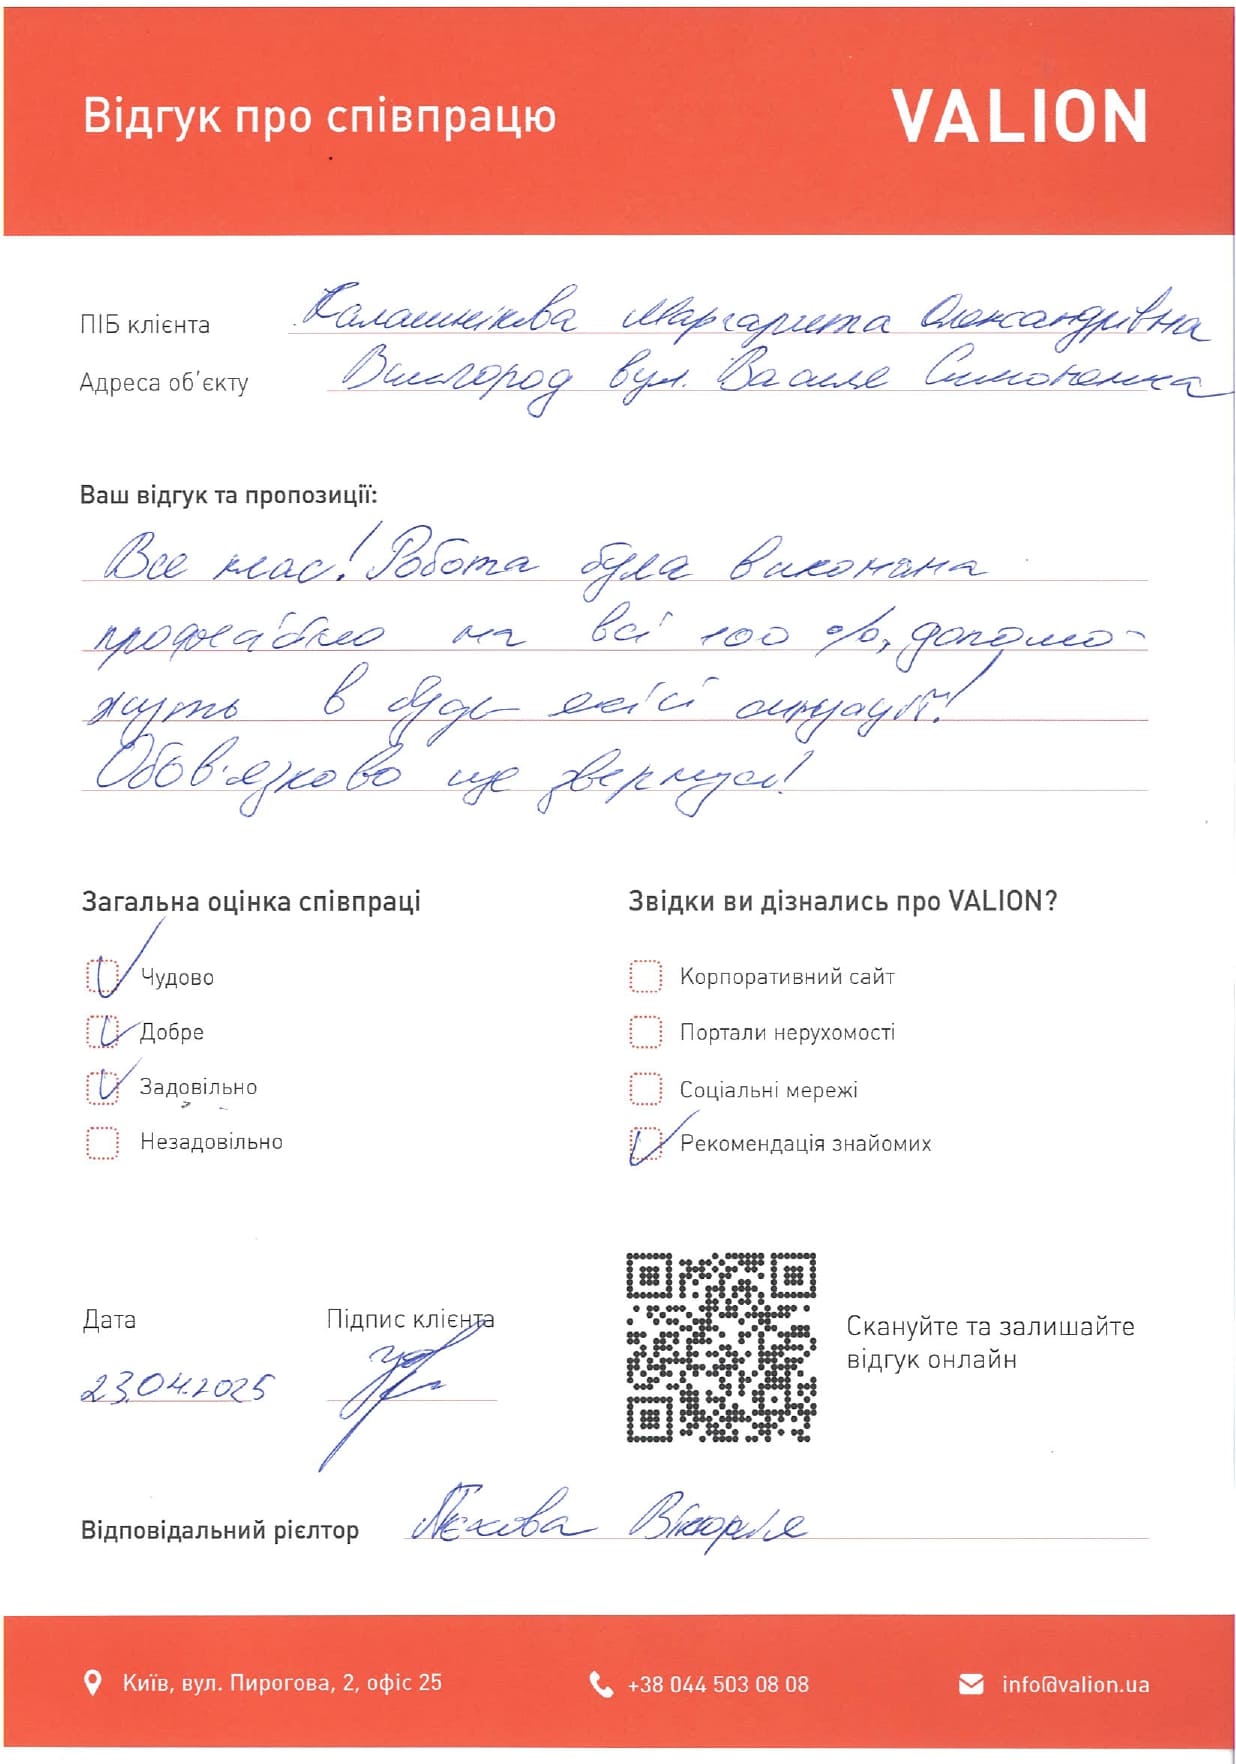 Відгук про співпрацю
VALION
ПІБ клієнта Калашнікова Маргарита Олександрівна
Адреса об'єкту Вишгород вул. Василя Симоненка
Ваш відгук та пропозиції:
Все клас! Робота була виконана
на всі 100 %, допомо-
жуть в будь якісі ситуації!
Обов'язково ще звернуся!
Загальна оцінка співпраці
Чудово
Добре
Задовільно
Незадовільно
Звідки ви дізнались про VALION?
Корпоративний сайт
Портали нерухомості
Соціальні мережі
Рекомендація знайомих
Дата
23.04.2025
Підпис клієнта
Скануйте та залишайте
відгук онлайн
Відповідальний рієлтор Вікторія
Київ, вул. Пирогова, 2, офіс 25
+38 044 503 08 08
info@valion.ua